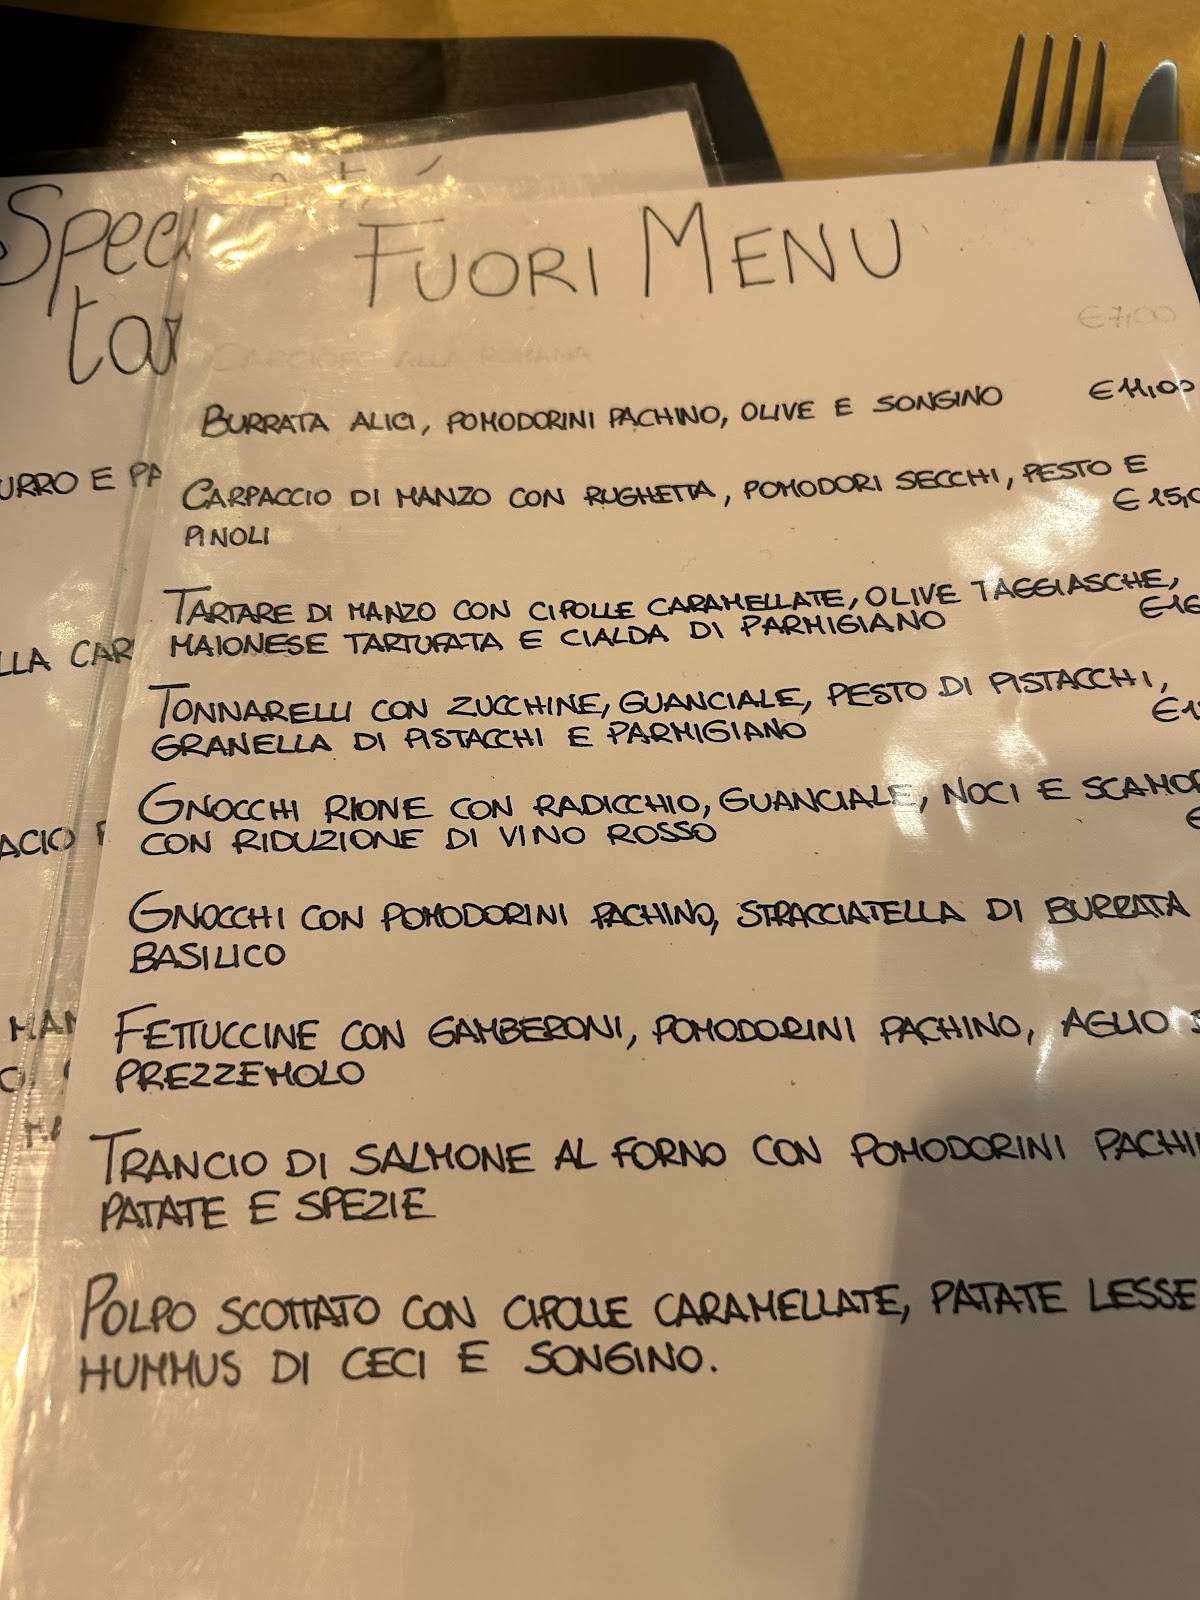 FUORI MENU
CARCIOFI ALLA ROMANA €7,00
BURRATA ALICI, POMODORINI PACHINO, OLIVE E SONGINO €11,00
CARPACCIO DI MANZO CON RUGHETTA, POMODORI SECCHI, PESTO E
PINOLI €15,0
TARTARE DI MANZO CON CIPOLLE CARAMELLATE, OLIVE TAGGIASCHE,
MAIONESE TARTUFATA E CIALDA DI PARMIGIANO €16
TONNARELLI CON ZUCCHINE, GUANCIALE, PESTO DI PISTACCHI,
GRANELLA DI PISTACCHI E PARMIGIANO €1
GNOCCHI RIONE CON RADICCHIO, GUANCIALE, NOCI E SCAMOR
CON RIDUZIONE DI VINO ROSSO €
GNOCCHI CON POMODORINI PACHINO, STRACCIATELLA DI BURRATA
BASILICO
FETTUCCINE CON GAMBERONI, POMODORINI PACHINO, AGLIO
PREZZEMOLO
TRANCIO DI SALMONE AL FORNO CON POMODORINI PACHIN
PATATE E SPEZIE
POLPO SCOTTATO CON CIPOLLE CARAMELLATE, PATATE LESSE
HUMMUS DI CECI E SONGINO.
Spec
tar
URRO E PA
LLA CAR
ACIO
MAN